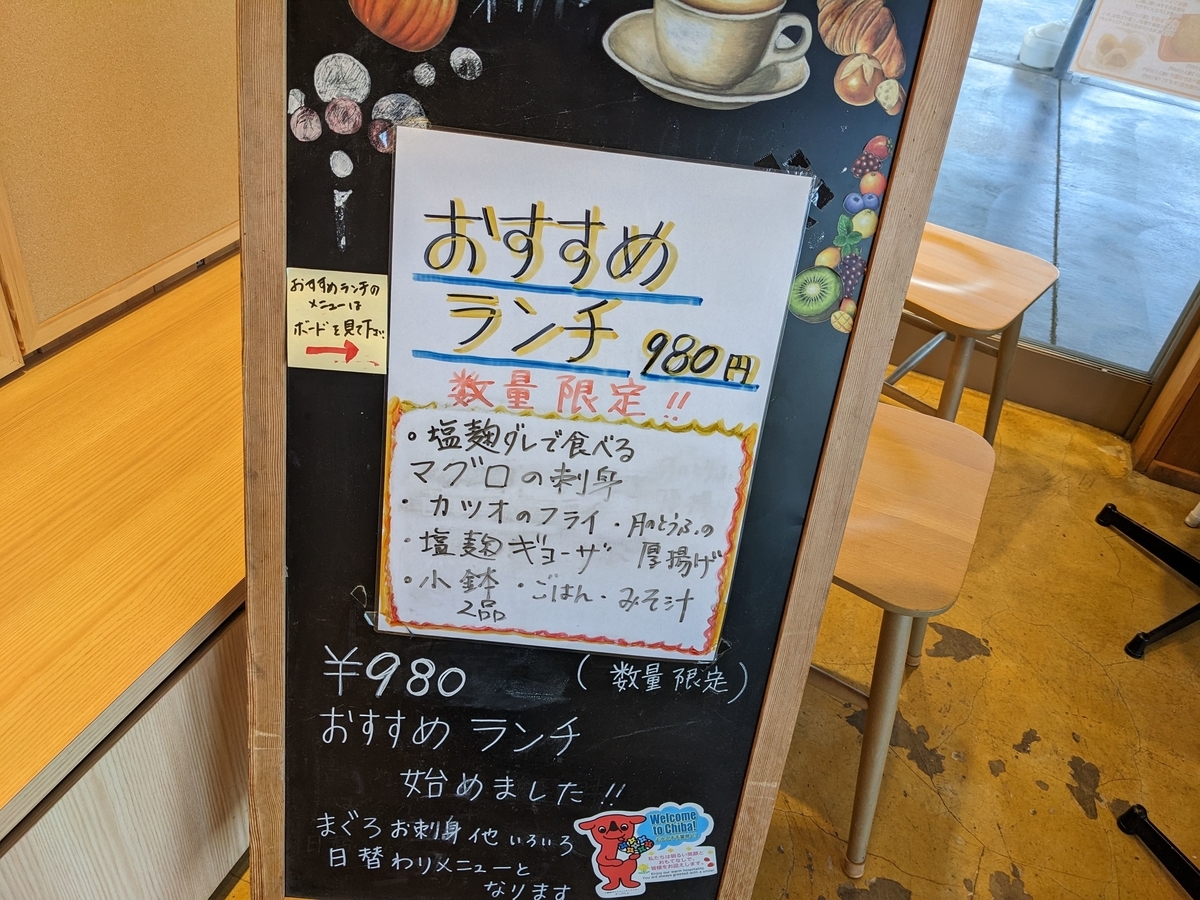 おすすめランチの
メニューは
ボードを見て下さい
おすすめ
ランチ 980円
数量限定!!
・塩麹ダレで食べる
マグロの刺身
・カツオのフライ・月のとうふの
厚揚げ
・塩麹ギョーザ
・小鉢 ・ごはん・みそ汁
2品
¥980 (数量限定)
おすすめ ランチ
始めました!!
まぐろお刺身他いろいろ
日替わりメニューと
なります
Welcome
to Chiba!
私たちは明るい笑顔と
おもてなしで、
皆様をお迎えします。